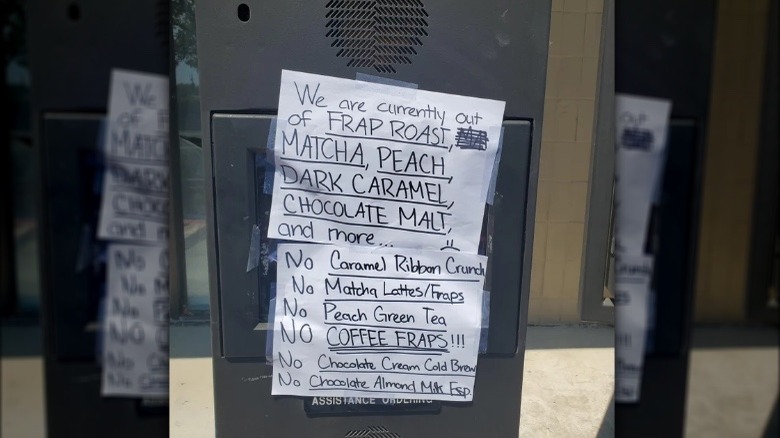 We are currently out
of FRAP ROAST,
MATCHA, PEACH,
DARK CARAMEL,
CHOCOLATE MALT,
and more...
No Caramel Ribbon Crunch
No Matcha Lattes/Fraps
No Peach Green Tea
NO COFFEE FRAPS!!!
No Chocolate Cream Cold Brew
No Chocolate Almond Milk Esp.
ASSISTANCE ORDERING